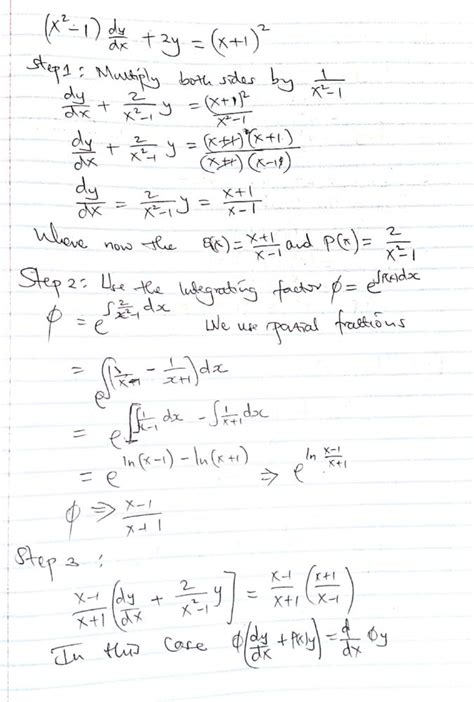 (x²-1) dy/dx + 2y = (x+1)²
Step 1: Multiply both sides by 1/(x²-1)
dy/dx + 2/(x²-1) y = (x+1)²/(x²-1)
dy/dx + 2/(x²-1) y = (x+1)(x+1)/(x+1)(x-1)
dy/dx = 2/(x²-1) y = (x+1)/(x-1)
Where now the Q(x) = (x+1)/(x-1) and P(x) = 2/(x²-1)
Step 2: Use the Integrating factor φ = e^∫P(x)dx
φ = e^∫2/(x²-1) dx We use partial fractions
= e^∫(1/(x-1) - 1/(x+1))dx
= e^[∫1/(x-1) dx - ∫1/(x+1) dx
= e^ln(x-1) - ln(x+1) ⇒ e^ln (x-1)/(x+1)
φ ⇒ (x-1)/(x+1)
Step 3:
(x-1)/(x+1) [dy/dx + 2/(x²-1) y] = (x-1)/(x+1) ((x+1)/(x-1))
In this case φ(dy/dx + P(x)y) = d/dx φy